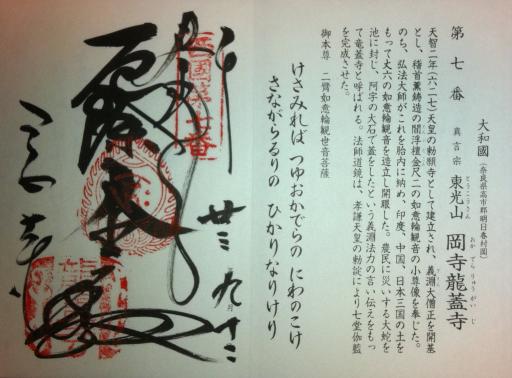 大和國（奈良県高市郡明日香村岡）
第七番 真言宗 東光山 岡寺龍蓋寺
とうこうさん おかでらりゅうがいじ
天智二年（六二七）天皇の勅願寺として建立され、義淵大僧正を開基
とし、稽首薫鋳造の閻浮檀金尺二の如意輪観音の小尊像を奉じた。
のち、弘法大師がこれを胎内に納め、印度、中国、日本三国の土を
もって丈六の如意輪観音を造立し開眼した。農民に災いする大蛇を
池に封じ、阿字の大石で蓋をしたという義淵法力の言い伝えをもっ
て竜蓋寺と呼ばれる。法師道鏡は、孝謙天皇の勅綻により七堂伽藍
を完成させた。
御本尊 二臂如意輪観世音菩薩
けさみれば つゆおかでらの にわのこけ
さながらるりの ひかりなりけり
西國第七番